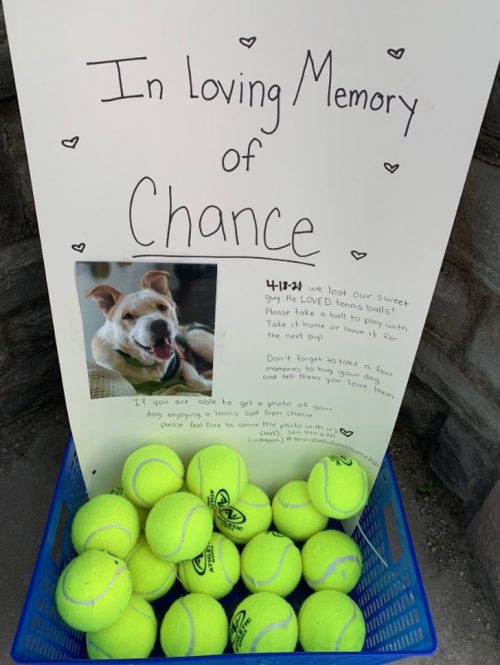 In Loving Memory
of
Chance
4-18-21 we lost our sweet
guy He LOVED tennis balls!
Please take a ball to play with
Take it home or leave it for
the next pup.
Don't forget to take a few
moments to hug your dog
and tell them you love them
If you are able to get a photo of your
dog enjoying a tennis ball from Chance
please feel free to share the photo with us
(text)
(instagram) #tennisballsfromchance
ATHLETIC
ATHLETIC